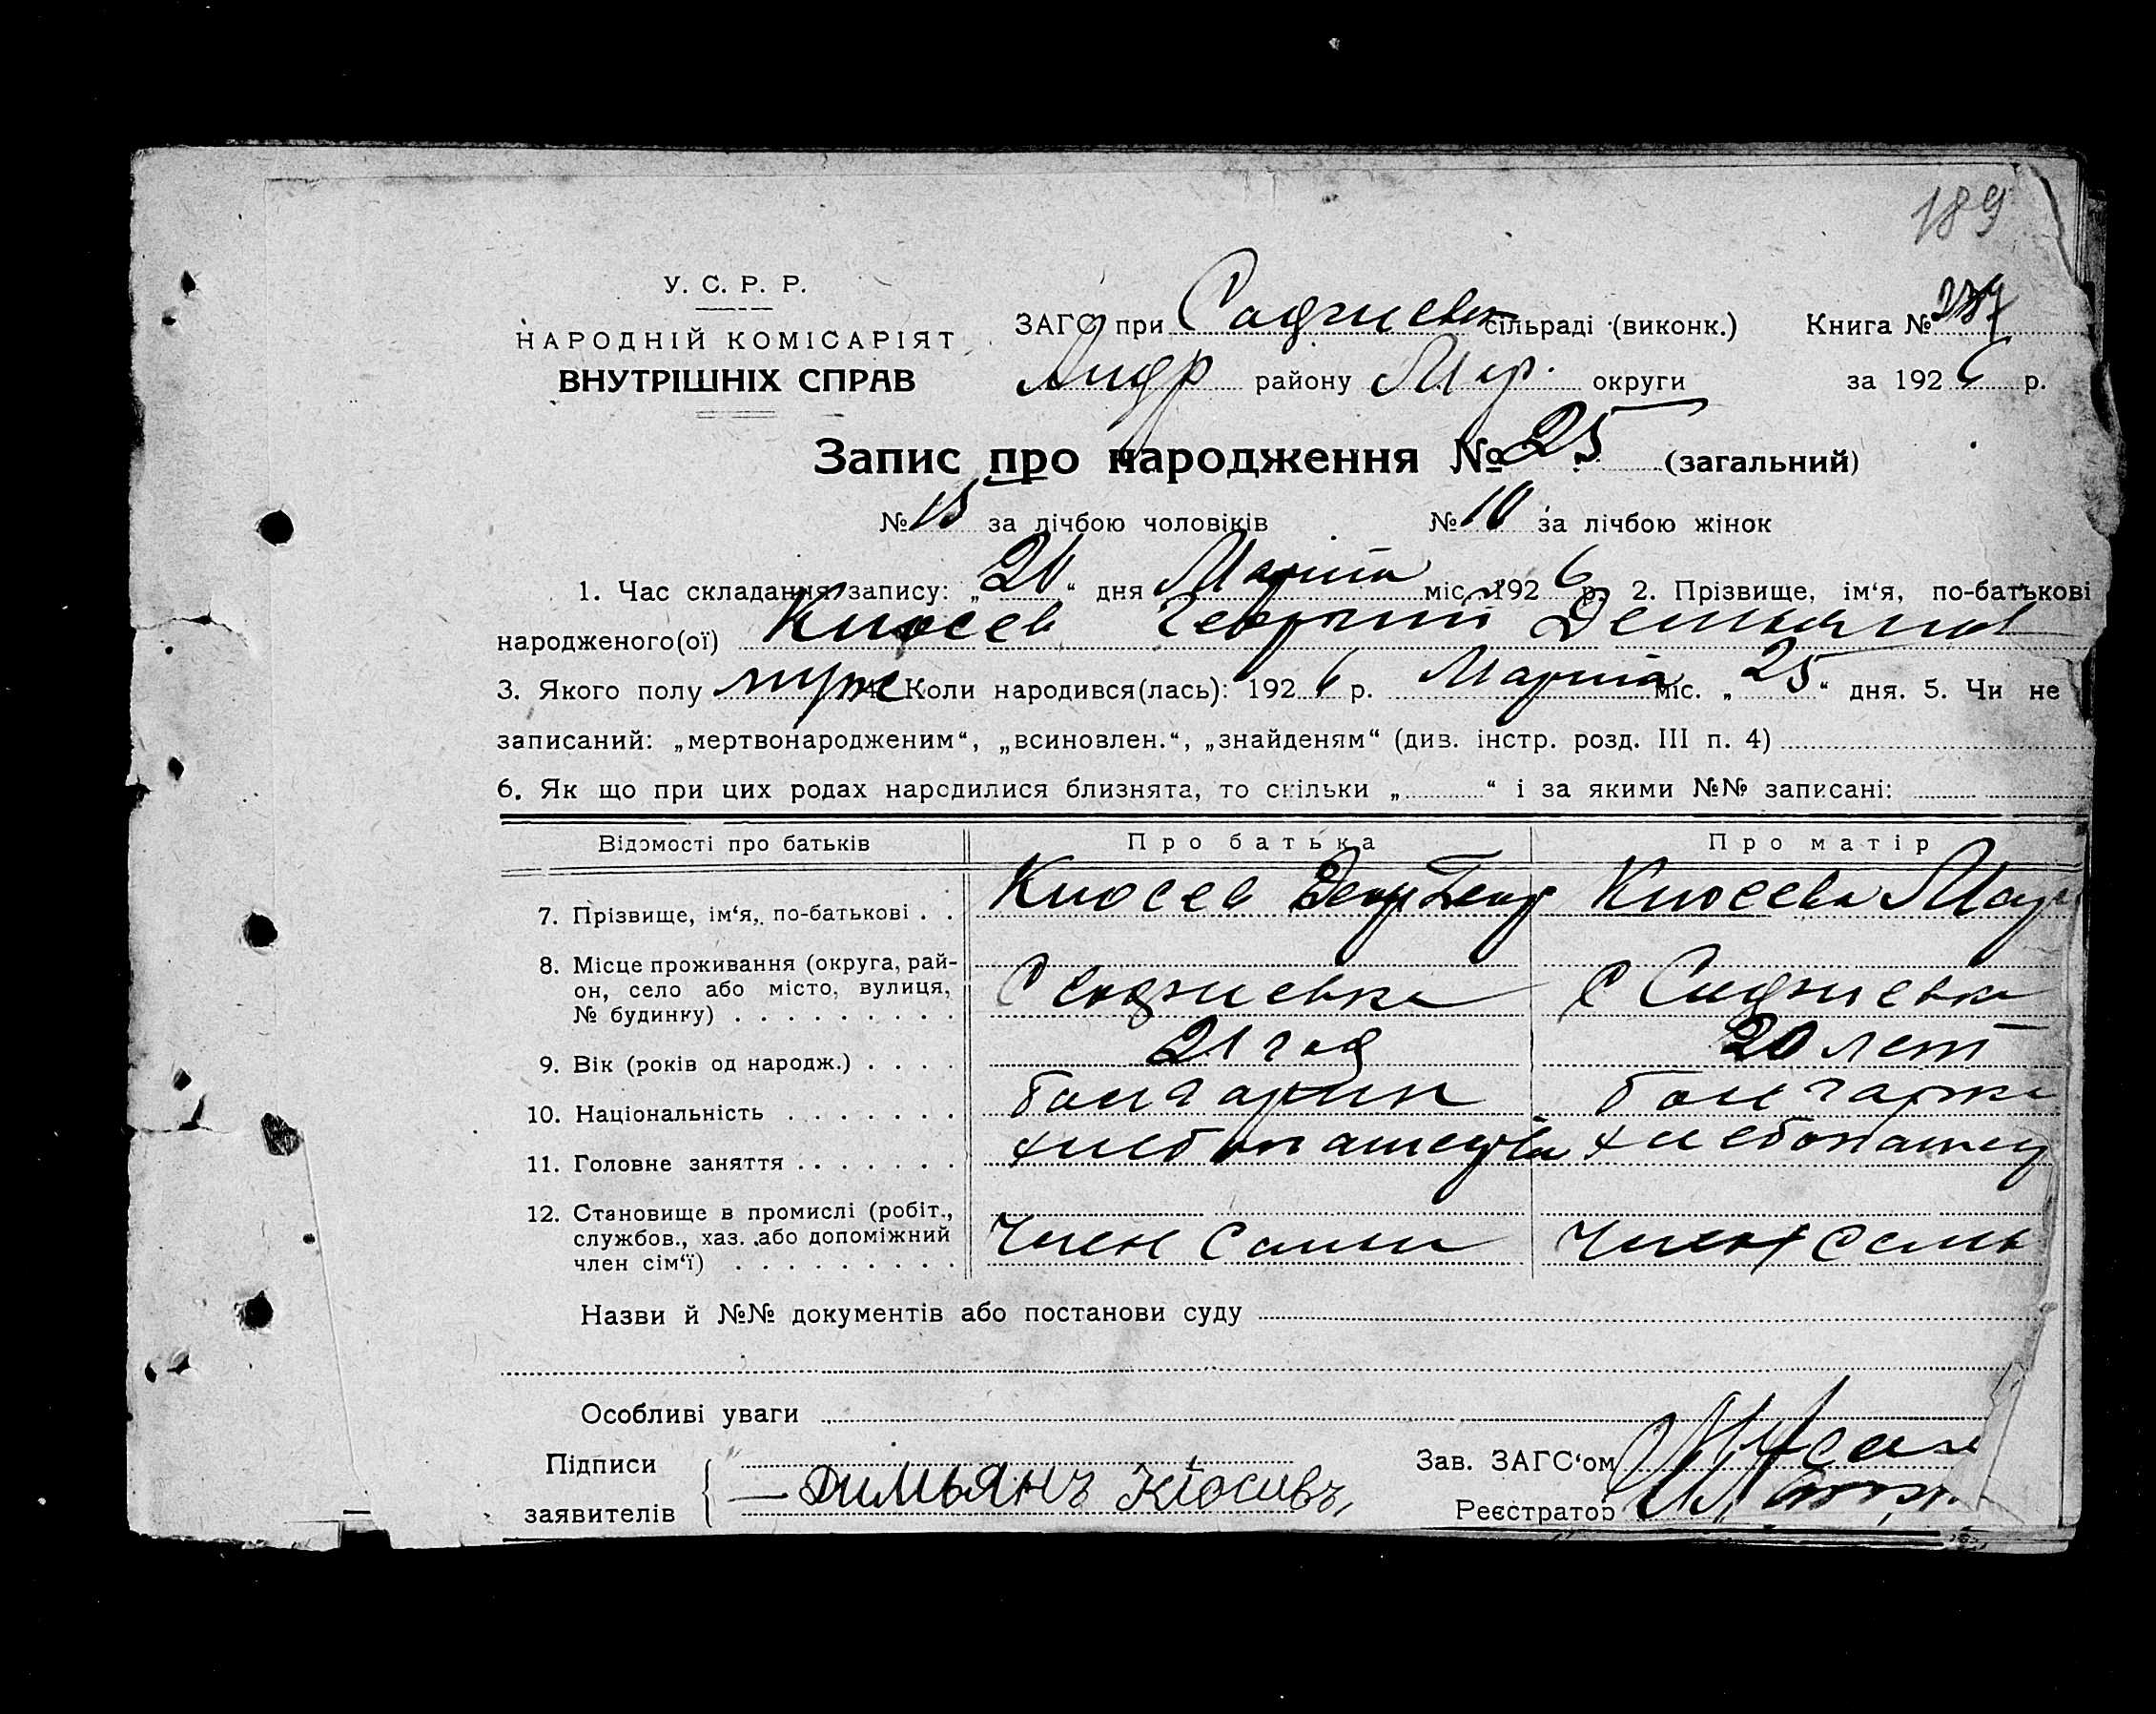 189
У. С. Р. Р.
НАРОДНІЙ КОМІСАРІЯТ
ВНУТРІШНІХ СПРАВ
ЗАГС при сільраді (виконк.) Книга № 237
Андр району Мар. округи за 1926 р.
Запис про народження № 25 (загальний)
№ 15 за лічбою чоловіків № 10 за лічбою жінок
1. Час складання запису: „ “ дня Марта міс. 1926 р. 2. Прізвище, ім‘я, по-батькові
народженого(ої) Кюсев Георгий
3. Якого полу муж 4. Коли народився(лась): 1926 р. Марта міс. „25“ дня. 5. Чи не
записаний: „мертвонародженим“, „всиновлен.“, „знайденям“ (див. інстр. розд. III п. 4)
6. Як що при цих родах народилися близнята, то скільки „ “ і за якими №№ записані:
Відомості про батьків Про батька Про матір
7. Прізвище, ім‘я, по-батькові . . Кюсев Кюсева Мар
8. Місце проживання (округа, рай-
он, село або місто, вулиця,
№ будинку) . . . . . . . . .
9. Вік (років од народж.) . . . . 21 год 20 лет
10. Національність . . . . . . . болгарин болгарка
11. Головне заняття . . . . . . . хлебопашец
12. Становище в промислі (робіт.,
службов., хаз. або допоміжний
член сім‘ї) . . . . . . . . . Член семи Член семи
Назви й №№ документів або постанови суду
Особливі уваги
Підписи
заявителів
Димьянъ Кіосивъ
Зав. ЗАГС‘ом
Реєстратор